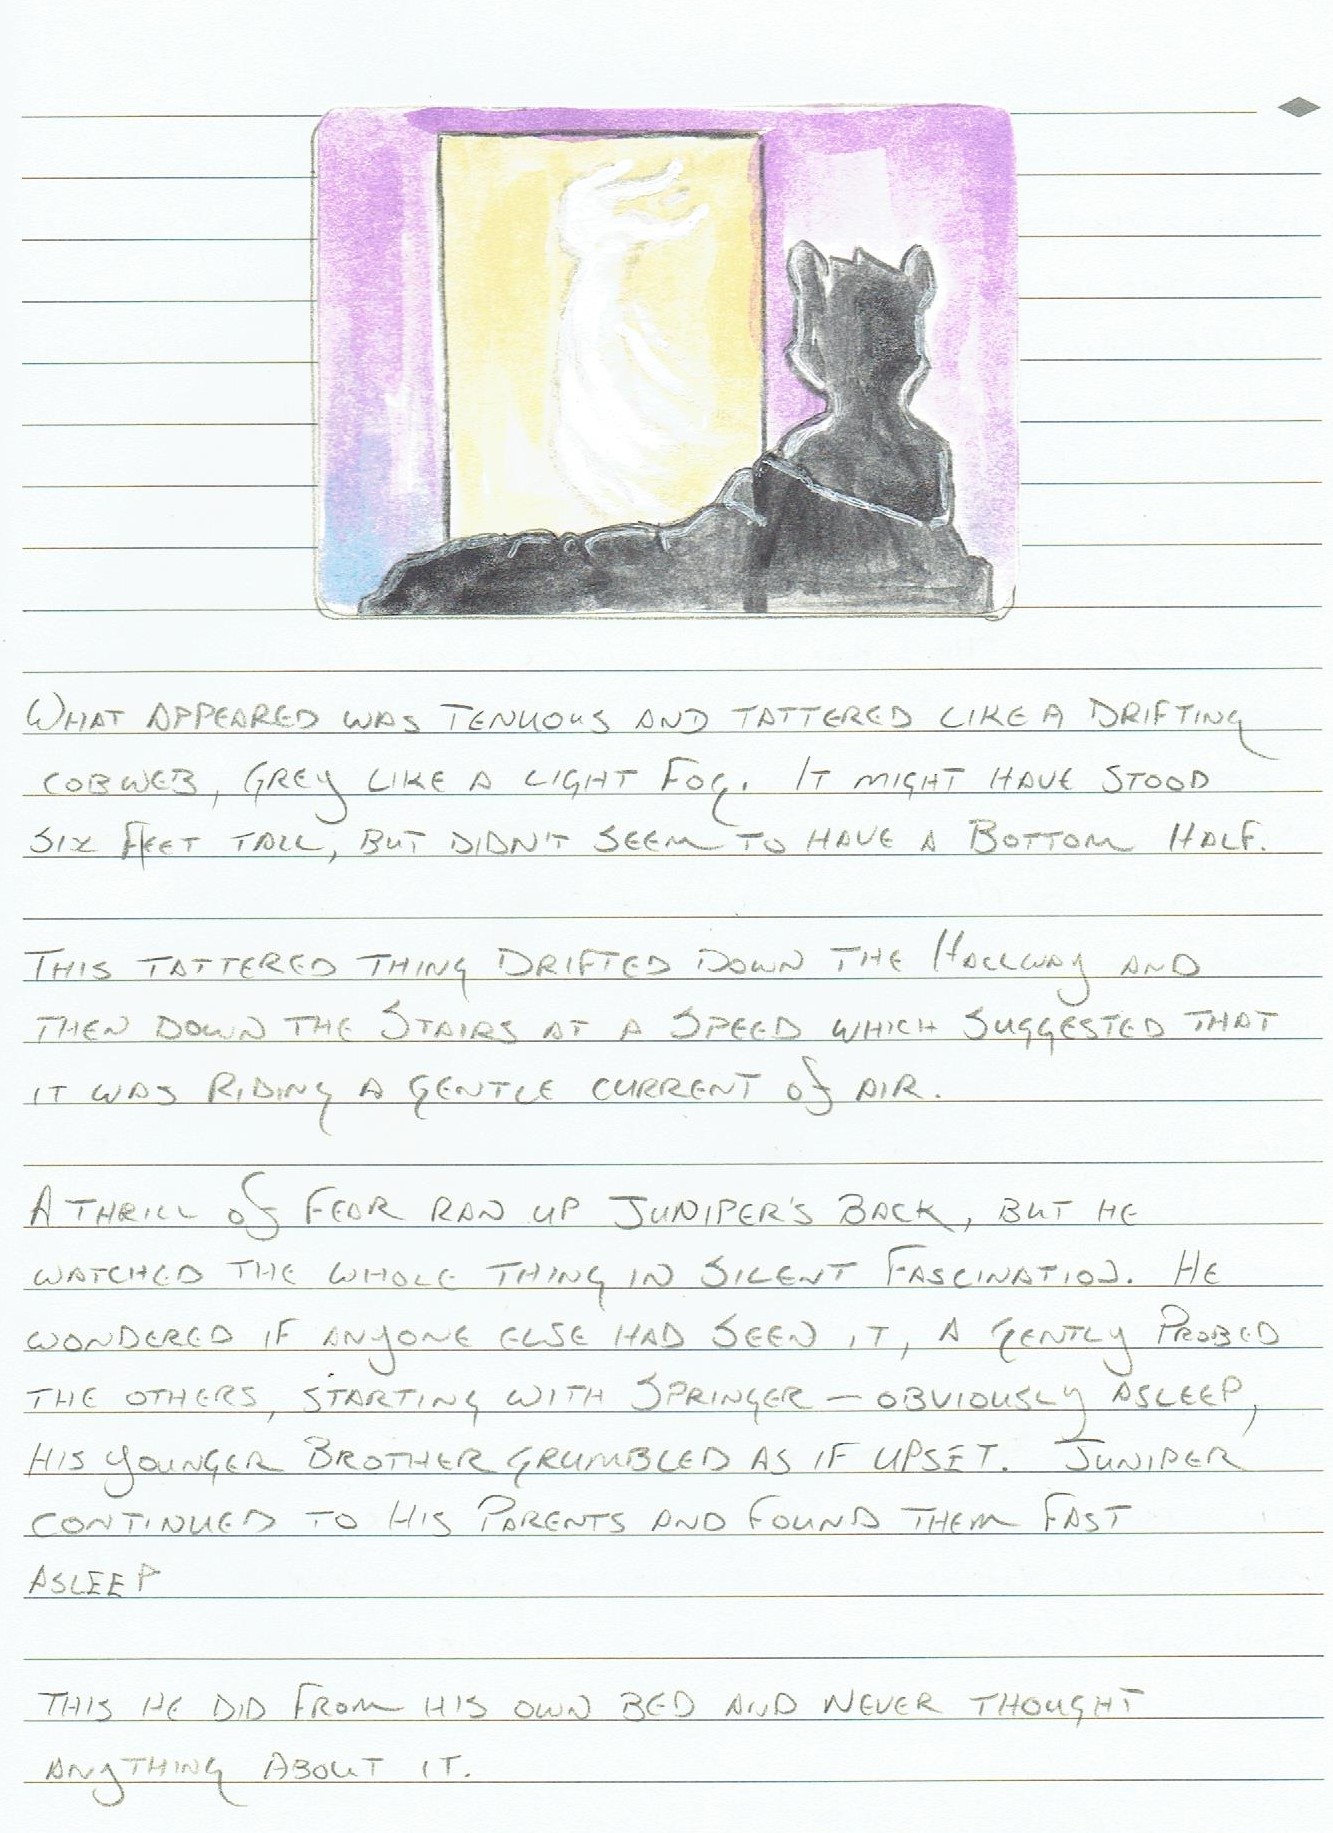 What appeared was tenuous and tattered like a drifting
cobweb, grey like a light fog. It might have stood
six feet tall, but didn't seem to have a bottom half.
This tattered thing drifted down the hallway and
then down the stairs at a speed which suggested that
it was riding a gentle current of air.
A thrill of fear ran up Juniper's back, but he
watched the whole thing in silent fascination. He
wondered if anyone else had seen it, a gently probed
the others, starting with Springer — obviously asleep,
his younger brother grumbled as if upset. Juniper
continued to his parents and found them fast
asleep
This he did from his own bed and never thought
anything about it.